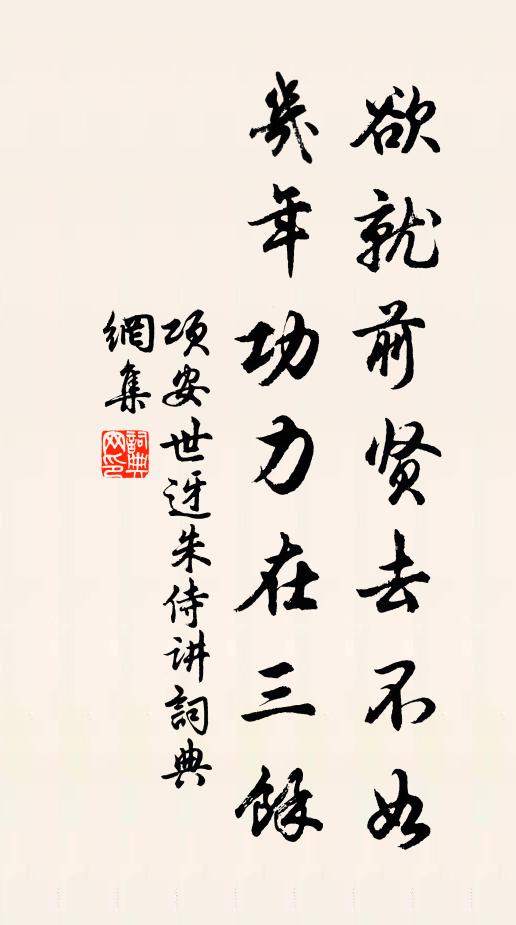 欲就前贤去不如
几年功力在三馀
项安世迓朱侍讲詞典
網集
詞典网印